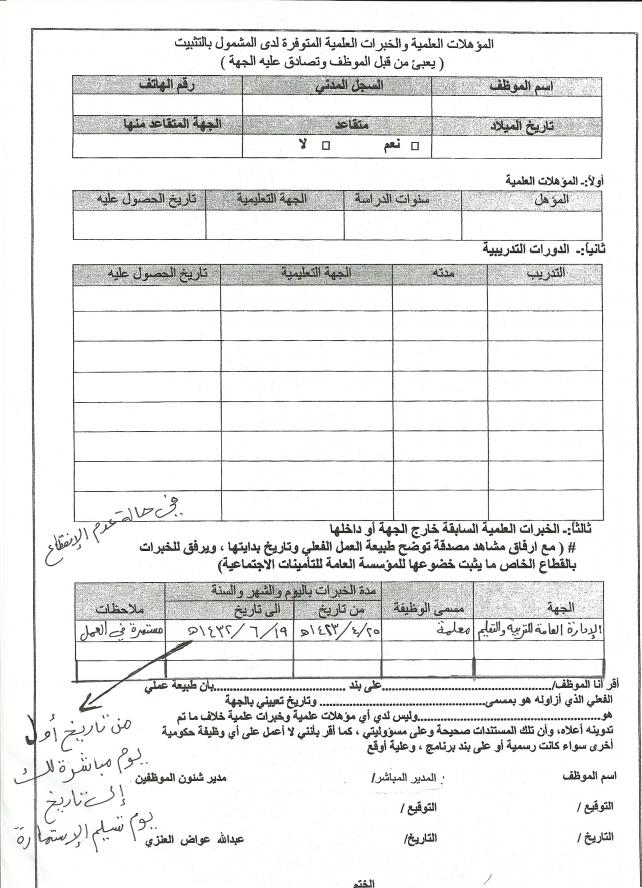 المؤهلات العلمية والخبرات العلمية المتوفرة لدى المشمول بالتثبيت
( يعبئ من قبل الموظف وتصادق عليه الجهة )
اسم الموظف السجل المدني رقم الهاتف
تاريخ الميلاد متقاعد الجهة المتقاعد منها
□ نعم □ لا
أولاً:- المؤهلات العلمية
المؤهل سنوات الدراسة الجهة التعليمية تاريخ الحصول عليه
ثانياً:- الدورات التدريبية
التدريب مدته الجهة التعليمية تاريخ الحصول عليه
في حالة عدم الإنقطاع
ثالثاً:- الخبرات العلمية السابقة خارج الجهة أو داخلها
# ( مع ارفاق مشاهد مصدقة توضح طبيعة العمل الفعلي وتاريخ بدايتها ، ويرفق للخبرات
بالقطاع الخاص ما يثبت خضوعها للمؤسسة العامة للتأمينات الاجتماعية)
الجهة مسمى الوظيفة مدة الخبرات باليوم والشهر والسنة ملاحظات
من تاريخ الى تاريخ
الإدارة العامة للتربية والتعليم معلمة ١٤٢٣/٤/٢٥هـ ١٤٣٢/٦/١٩هـ مستمرة في العمل
أقر أنا الموظف/..........................على بند ..........................بأن طبيعة عملي
الفعلي الذي أزاوله هو بمسمى.......................... وتاريخ تعييني بالجهة
هو..........................وليس لدي أي مؤهلات علمية وخبرات علمية خلاف ما تم
تدوينه أعلاه، وأن تلك المستندات صحيحة وعلى مسؤوليتي ، كما أقر بأنني لا أعمل على أي وظيفة حكومية
أخرى سواء كانت رسمية أو على بند برنامج ، وعلية أوقع
من تاريخ أول
يوم مباشرة لك
إلى تاريخ
يوم تسليم الإستمارة
اسم الموظف المدير المباشر/ مدير شئون الموظفين
التوقيع / التوقيع /
التاريخ / التاريخ/ عبدالله عواض العنزي
الختم